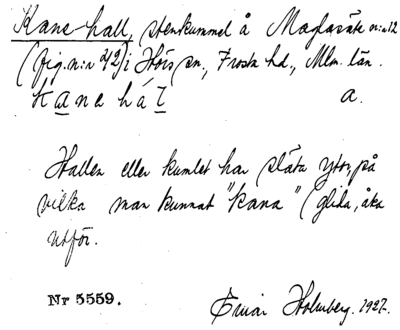 Kane-hall, stenkummel å Maglasäte n:o 12
(fig. n:o 2/2) i Hörs sn., Frosta hd., Mlm. län.
kanehál a.
Hallen eller kumlet har släta ytor, på
vilka man kunnat "kana" (glida, åka
utför.
Nr 5559. Einar Holmberg. 1927.